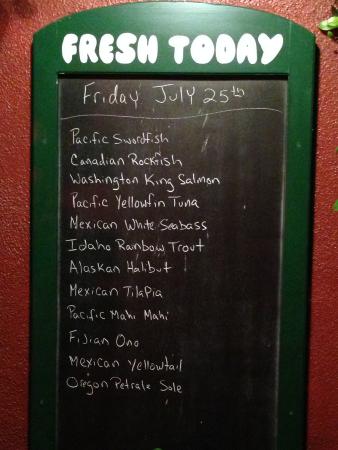 FRESH TODAY
Friday July 25th
Pacific Swordfish
Canadian Rockfish
Washington King Salmon
Pacific Yellowfin Tuna
Mexican White Seabass
Idaho Rainbow Trout
Alaskan Halibut
Mexican Tilapia
Pacific Mahi Mahi
Fijian Ono
Mexican Yellowtail
Oregon Petrale Sole